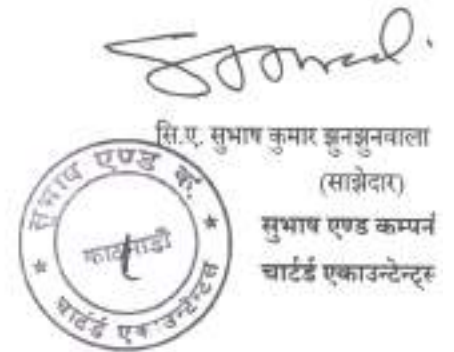 सि.ए. सुभाष कुमार झुनझुनवाला
(साझेदार)
सुभाष एण्ड कम्पनी
चार्टर्ड एकाउन्टेन्ट्स
सुभाष एण्ड कं.
काठमाडौं
चार्टर्ड एकाउन्टेन्टस